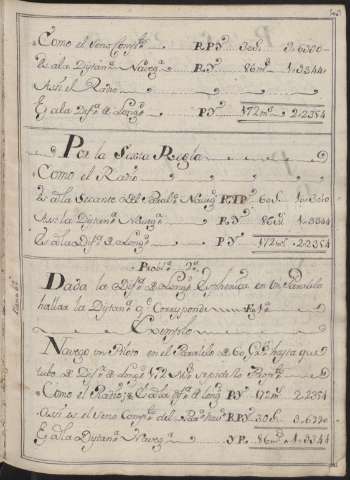 Como el Seno Comp.to P.R.Y. 30G. 9.6990
Es ala Distan.a Naveg.a P.Y. 86 m.s 1.9344
Assi el Radio
Es ala Dif.a de Long.d P.Y. 172 m.s 2.2354
Por la Sexta Regla
Como el Radio
Es ala Secante del Paral.o Naveg.o 60G. 10.3010
Assi la Distan.a Naveg.a P.Y. 86 1.9344
Es ala Dif.a de Long.d P.Y. 172 2.2354
Probl.a 2.o
Dada la Dif.a de Long.d en un Paralelo
hallar la Distan.a q.e Corresponde
Exemplo
Navego un Piloto en el Paralelo de 60 G.s hasta que
tubo de Dif.a de Long.d 172
Como el Radio Es ala Dif.a de Long.d P.Y. 172 m.s 2.2354
Assi es el Seno Comp.to del Paral.o Nav.o P.R.Y. 30G. 9.6990
Es ala Distan.a Naveg.a Y.P. 86 m.s 1.9344